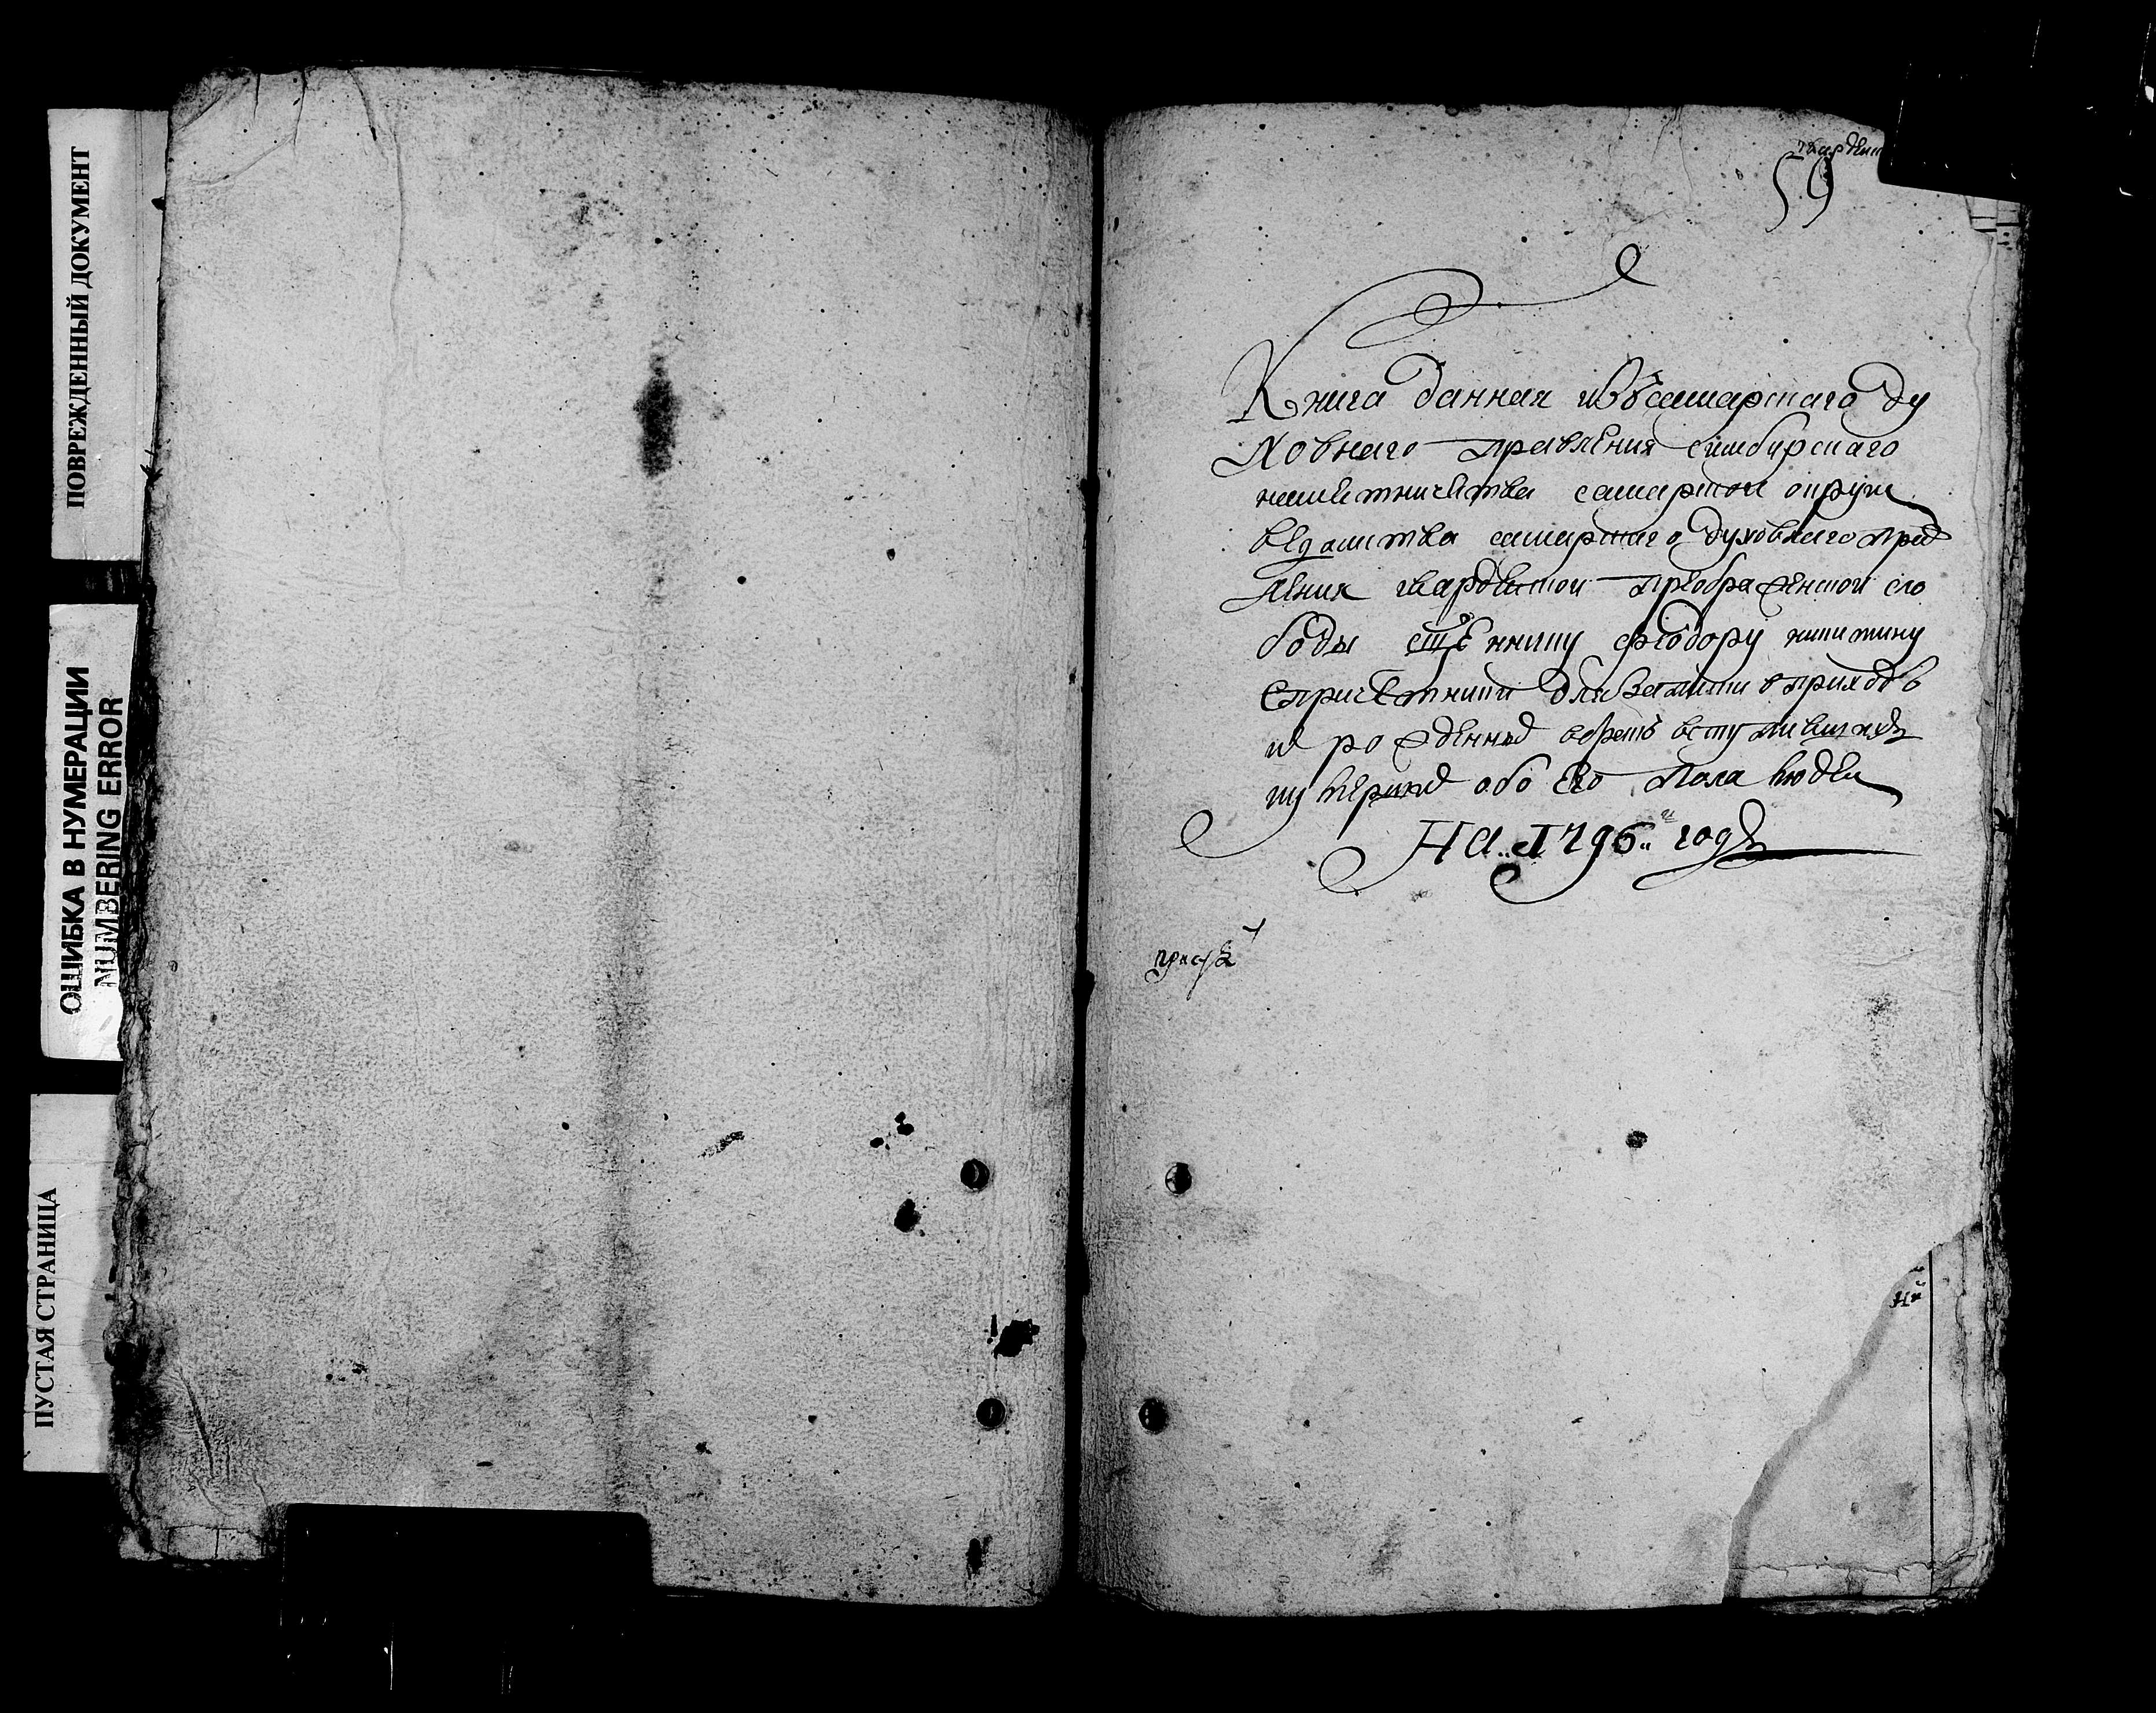 ПОВРЕЖДЕННЫЙ ДОКУМЕНТ
ОШИБКА В НУМЕРАЦИИ
NUMBERING ERROR
ПУСТАЯ СТРАНИЦА
59
Книга данная изъ самарскаго ду
ховнаго правления симбирскаго
наместничества самарской округи
ведомства самарскаго духовнаго прав
ления гвардейской преображенской сло
боды сщеннику феодору никитину
спричетники для записки в приходѣ
и рожденных в бракъ вступивших
и умерших обо его пола людей
На 1796 годъ